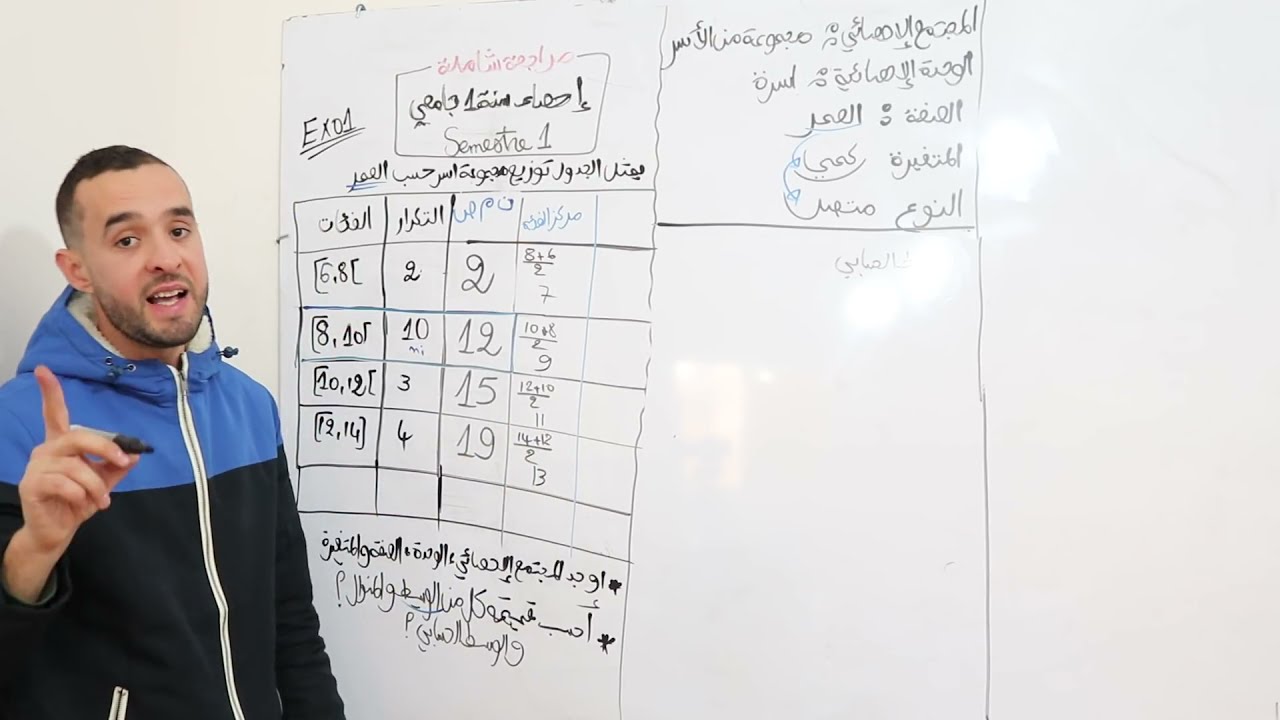 المجتمع الإحصائي : مجموعة من الأسر
الوحدة الإحصائية : اسرة
الصفة : العمر
المتغيرة كمي
النوع متصل
مراجعة شاملة
إحصاء سنة 1 جامعي
Semestre 1
Ex01
يمثل الجدول توزيع مجموعة اسر حسب العمر
الفئات التكرار ت م ص مركز الفئة
[6,8[ 2 2 8+6/2 7
[8,10[ 10 ni 12 10+8/2 9
[10,12[ 3 15 12+10/2 11
[12,14] 4 19 14+12/2 13
* اوجد المجتمع الإحصائي، الوحدة، الصفة والمتغيرة
* أحسب قيمة كل من الوسيط والمنوال ؟
والوسط الحسابي ؟